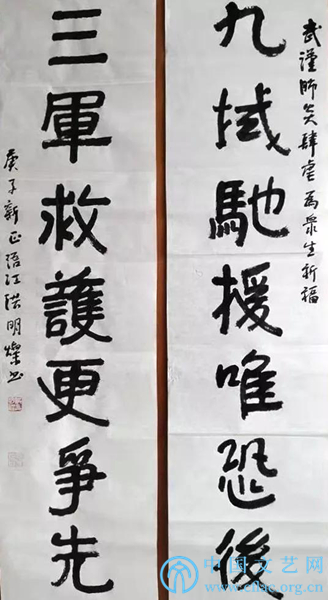 武漢肺炎肆虐為衆生祈福
九域馳援唯恐後
三軍救護更爭先
庚子新正浯江洪明燦书
中国文艺网
www.cflac.org.cn